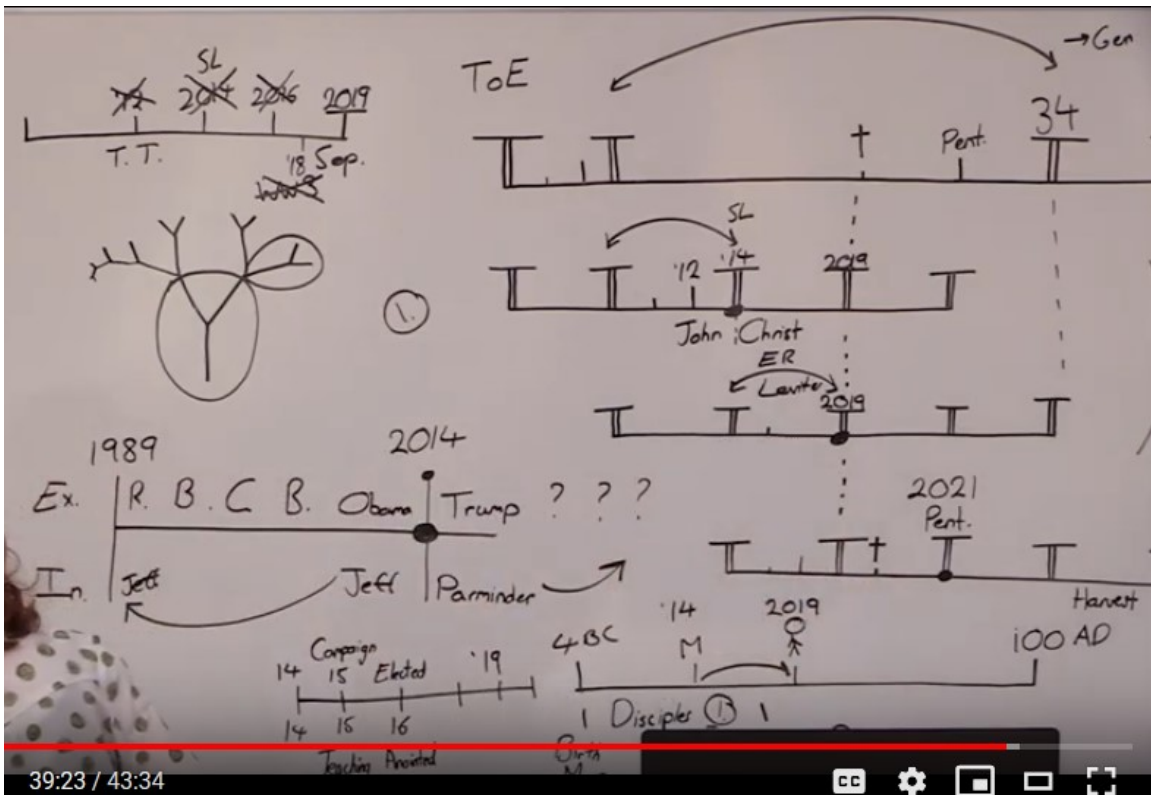 SL
2014 2016 2019
T. T.
'18 Sep.
ToE
→Gen
†
Pent.
34
SL
'12 '14 2019
1.
John ; Christ
ER
2019
1989 2014
Ex. R. B. C B. Obama Trump ? ? ?
In. Jeff Jeff Parminder
2021
Pent.
†
Harvest
Campaign
14 15 Elected '19
14 15 16
Teaching Anointed
4BC '14 2019 100 AD
M
1 Disciples 1. 1
Birth
39:23 / 43:34
CC